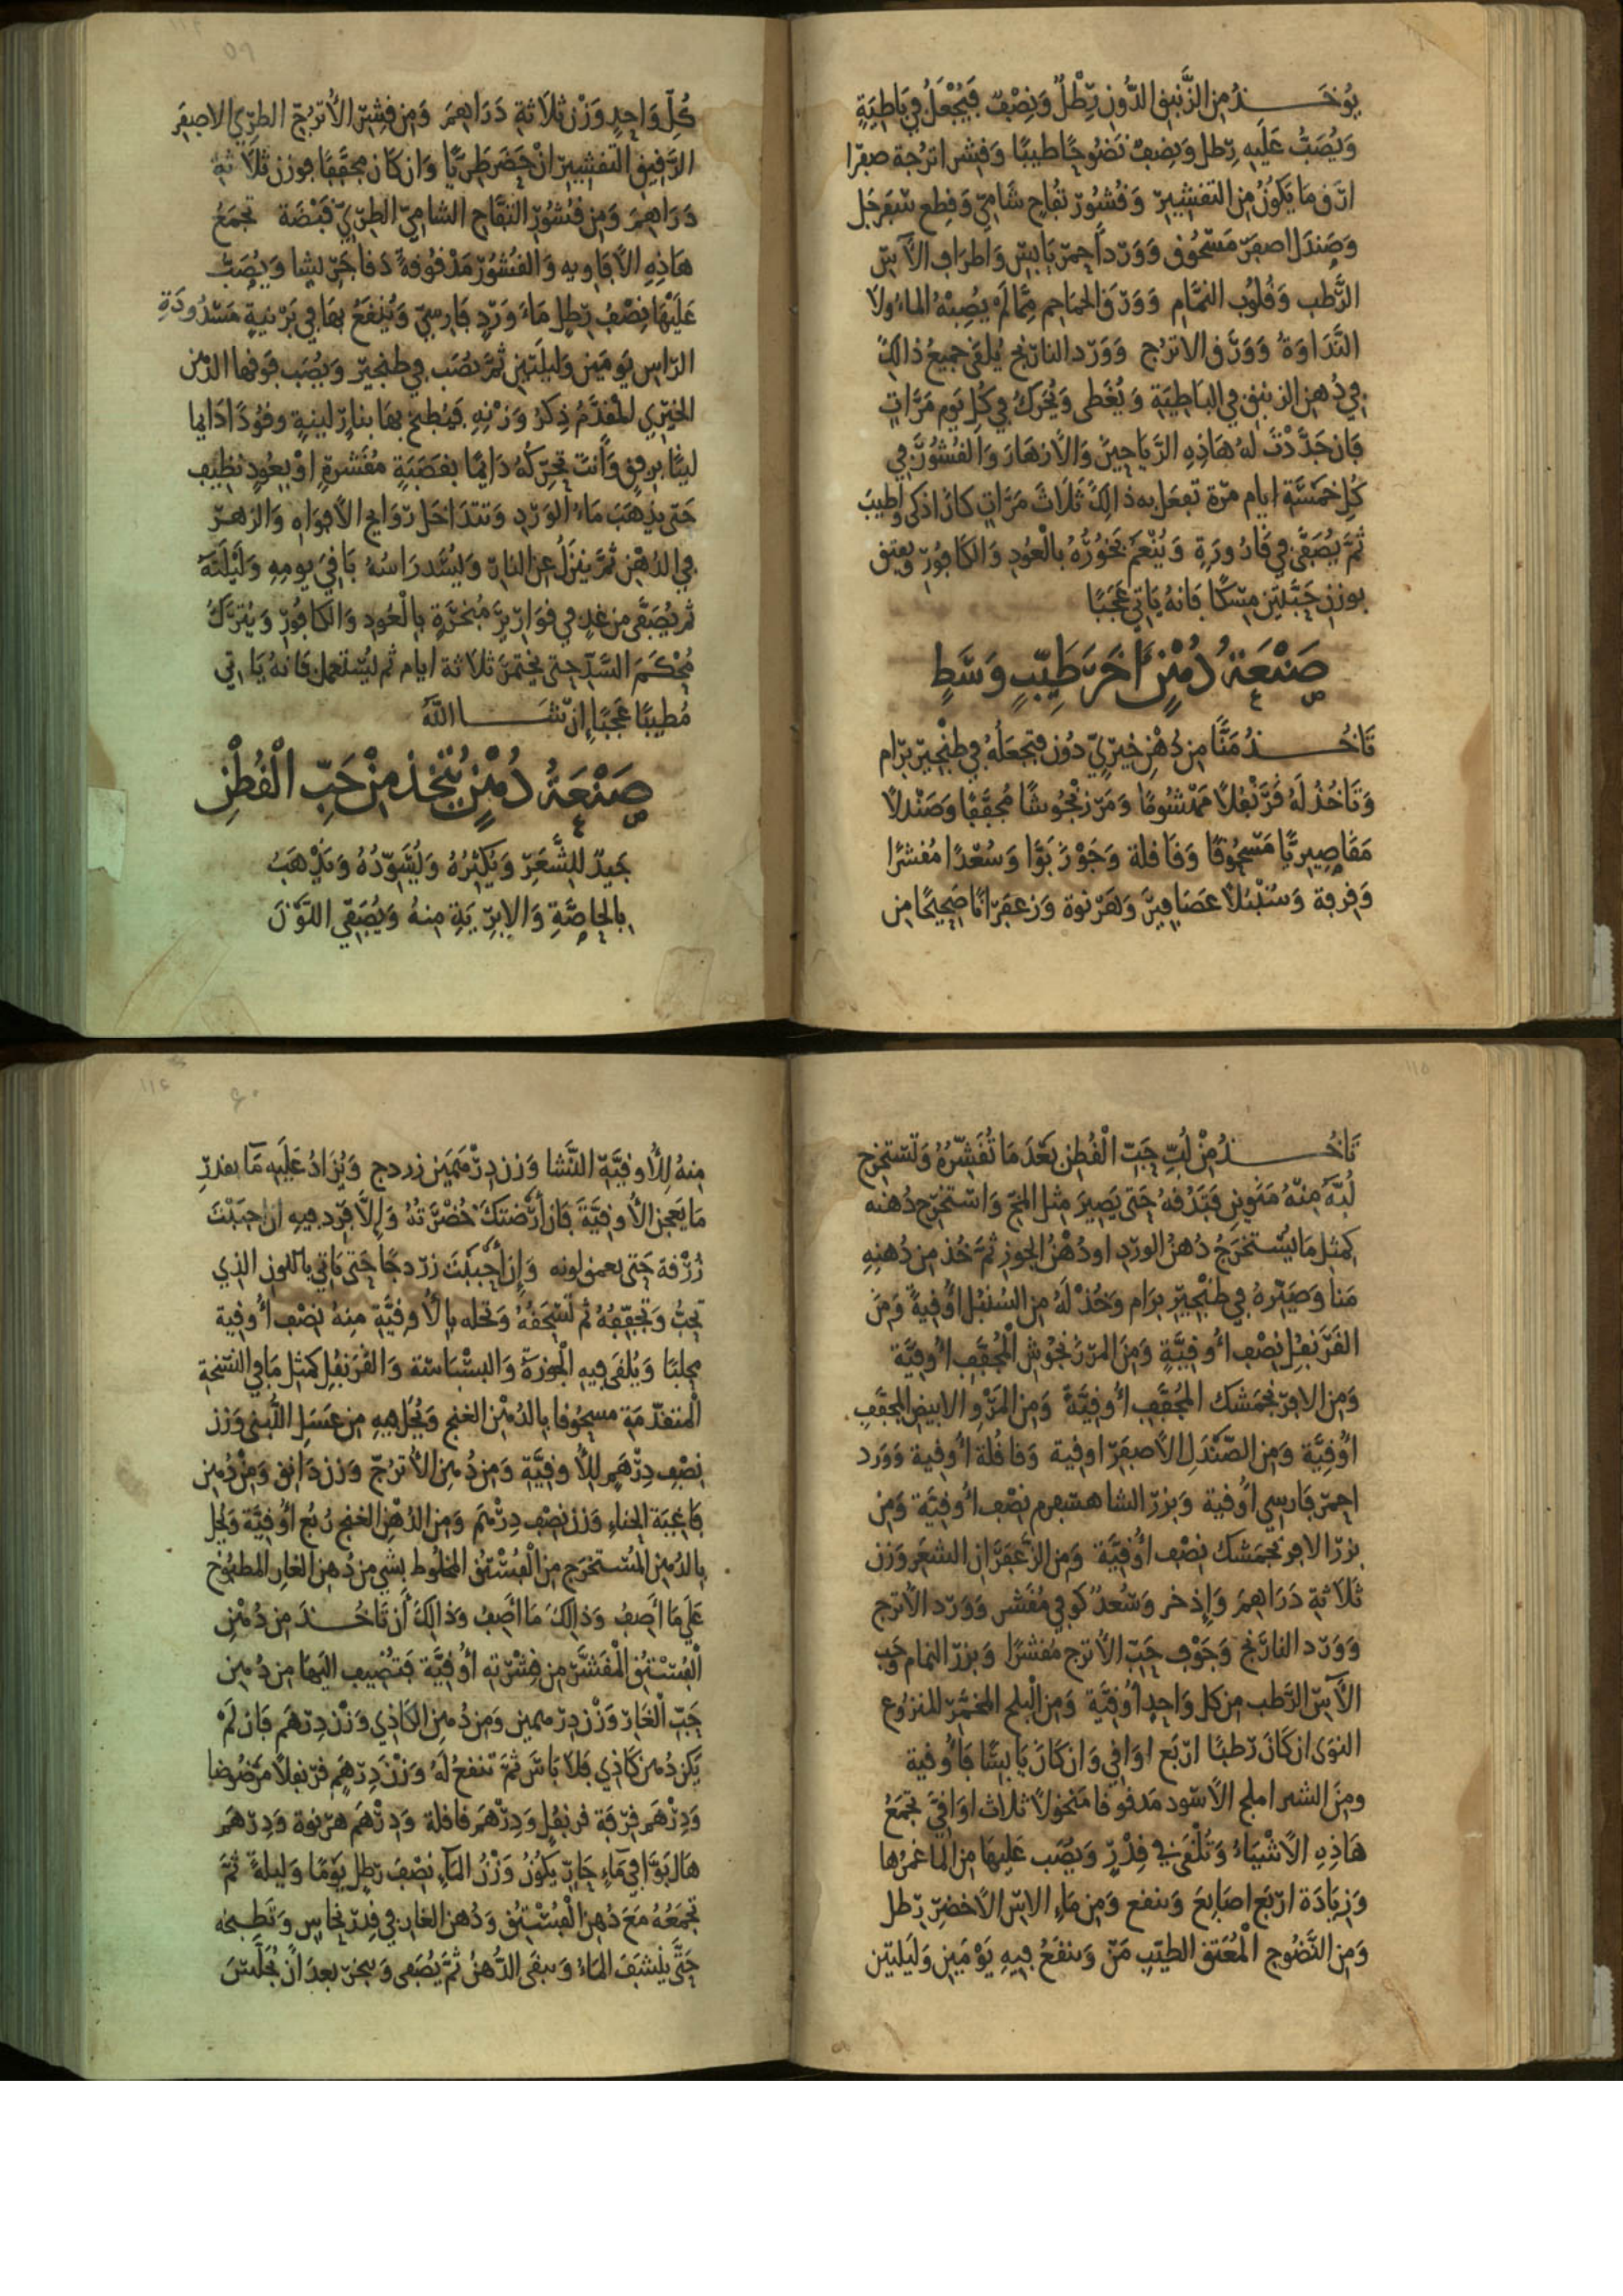 يُوخَــذُ مِن الزَّنبق الدُّونِ رِّطْلٌ وَنِصْف فَيُجْعَلُ فِي بَاطِيَةٍ
وَيُصَبُّ عَلَيه رِّطل وَنِصفْ نَضُوجًا طيبًا وَقشر اترُجة صفرا
ارّق مَا يَكونُ مِن التقشِيرّ وَقُشُورّ تُفاح شَامِيّ وَقطع سَفرجَل
وَصَندَل اصفرّ مَسّحُوق وَوَرّداً احمرّ يَابسّ وَاطرَاف الآسّ
الرَّطب وَقُلوُب النمَّام وَوَرّق الحمَاحم ممَّا لَمْ يُصِبْهُ الماءُ ولا
النَّدَاوَةُ وَوَرَّق الاترُج وَوَرّد النارّنج يُلقى جميعُ ذالكَ
في دُهن الزنبق في البَاطِيَة وَيُغَطى وَيُحَرك في كُل يَوم مَرَّاتٍ
فَان جَدَّدْتَ لهُ هَاذِهِ الرَّيَاحِينَ وَالأَزهَارَ وَالقشُورَّ في
كُل خمَسَّة ايام مرّة تفعَل به ذالكَ ثَلَاثَ مَرَّاتٍ كانَ اذكى وَاطيبَ
ثمَّ يُصَفَّى في قَارُورَةٍ وَيُنْعَم بَخُورُّهُ بالْعُودِ وَالكافُورّ وَيعتق
بوزن حَبَّتين مِسّكًا فَانهُ يَاتي عَجَبًا
صَنْعَةُ دُهْنٍ آخَرَ طَيِّبٍ وَسَطٍ
تَاخُــذُ مَنًّا مِن دُهْنِ خِيرّيّ دُون فتجعَلهُ في طنْجِيرّ برّام
وَتَاخُذُ لَهُ قَرَّنْفُلاً مَهْشُومًا وَمَرّزنْجُوشًا مُجَفَّفًا وَصَنْدلاً
مَقَاصِيريًّا مَسّحُوقًا وَقَاقلة وَجَوْزَ بَوَّا وَسُعْدًا مُقشرًا
وَقرفة وَسُنْبُلاً عَصَافِيرَّ وَهَرّنوة وَزعفرّانًا صَحِيحًا مِن
كُلِّ وَاحِدٍ وَزْن ثلاَثةِ دَرَاهِمَ وَمِن قِشرّ الأُترُجّ الطرِّيّ الاصفرَ
الرَّقيق التقشِيرّ انْ حَضَرَ طَرِيًّا وَان كَان مجفَّفًا فوزن ثلاَثة
دَرَاهِمَ وَمِن قشُورّ التفَّاح الشامِيّ الطرّيّ قَبْضَة تجمَعُ
هَاذِهِ الأَفَاويه وَالقشُورّ مَدْقُوقةً دَقا جَرّيشا وَيُصَبّ
عَلَيْهَا نِصْفُ رّطلٍ مَاءَ وَرّدٍ فَارِسِيّ وَيُنْقَعُ بهَا في بَرْنيةٍ مَسّدُودَةِ
الرّاس يَومَين وَليلَتين ثمَّ يصَب في طنجيرّ وَيُصَب فَوقها الدّهْن
الخِيرّي المُقدَّمُ ذِكرُ وَزْنِهِ فَيُطبخ بهَا بنارّ لينةٍ وقوُدًا دَايما
لينًا برفقٍ وَأَنتَ تحَرّكُهُ دَايمًا بقصَبَةٍ مُقَشرَةٍ اوْ بعُودٍ نظِيف
حَتى يَذهَبَ مَاءُ الوَرّد وَتتدَاخَلَ رّوَايحُ الأَفوَاه وَالزهَر
في الدُهْن ثمَّ ينزَلُ عن النارّ وَليُسَّد رَاسُهُ بَاقِيَ يومِهِ وَلَيْلَتَهُ
ثم يُصَفَّى من غَدٍ في قوَارّيرَّ مُبَخرَّةٍ بالْعُود وَالكافُورّ وَيُترَّكُ
مُحْكَمَ السَّدّ حتى يختمَرَ ثلاَثة ايام ثم ليُسّتَعمل فَانهُ يَاتي
مُطيبًا عَجَبًا إِنْ شَــا اللَّهُ
صَنْعَةُ دُهْنٍ يُتَّخذ مِنْ حَبِّ الْقُطْنِ
جَيدٌ للشَّعَرِّ وَيُكثرُهُ وَيُسَّوّدُهُ وَيَذْهَبُ
بالحاصَّةِ وَالابرّيَةِ مِنهُ وَيُصَفّي اللوْنَ
تَاخُــذُ مِنْ لُبِّ حَبّ الْقُطن بَعّدَ مَا تُقَشّرُهُ وَتَسّتخرِج
لُبَّهُ مِنّهُ مَنَوينِ فَتَدُقهُ حَتى يَصِيرَ مِثل المخّ وَاسّتخرّج دُهنه
كمثل مَا يُسّتخرَجُ دُهنُ الورّد او دُهْنُ الجوز ثمَّ خُذ مِن دُهنِهِ
مَنا وَصَيّرْهُ في طنْجِيرّ برَام وَخُذْ لَهُ مِن السُنبُل أُوقيةً وَمِنَ
القَرَّنفُلِ نِصْف أُوقيَّةٍ وَمِنَ المرّزنجُوش الْمجُفَّف أُوقيَّة
وَمِن الافرّنجمَشك المُجفَّف أُوقيَّةً وَمِن المَرّو الابيض المجفَّفِ
أُوقيَّة وَمِن الصَّنْدَل الأَصفرّ اوقية وَقاقُلة أُوقية وَوَرد
احمرّ فَارسي أُوقية وَبزرّ الشاهسّفرم نِصْف أُوقيَّة وَمِن
بزرّ الافرنجمَشك نِصْف أُوقيَّة وَمِن الزَّعفرَّان الشعَر وَزن
ثَلاَثةِ دَرَاهِمَ وَإِذخر وَسُعدٌ كوفي مُقَشر وَوَرّد الأُترج
وَوَرّد النارَّنج وَجَوْف حَبّ الأُترج مُقشرًا وَبزرّ النمام وَحَب
الآسّ الرَّطب مِن كل وَاحدٍ أُوقيَّة وَمِن البلح المخَمّرّ المنزُوع
النوَى ان كَانَ رّطبًا ارّبَع اوَاقي وَان كَانَ يَابسًّا فَأُوقية
ومِنَ الشير املج الأَسّود مَدقُوقا مَنخولاً ثلاث اوَاقيَ تجمَعُ
هَاذِهِ الأَشْيَاءُ وَتُلْقَى في قِدْرٍّ وَيُصَب عَليهَا مِن الما غَمرُها
وَزيَادَة ارّبَع اصَابعَ وَينقع وَمِن مَاءِ الاسّ الأَخضرّ رّطل
وَمِن النَّضُوج الْمُعَتق الطيّبِ مَنّ وَينقعُ فيهِ يَوْمَين وَلَيلتين
مِنهُ لِلأُوقيَّة النَّشا وَزن دِرّهَمَين زردج وَيُزَادُ عَلَيه مَا بقدرّ
مَا يَعجن الأُوقيَّةَ فَان أَرّضتكَ خُضْرَتهُ وَالَّا فزد فيهِ ان احبَبْتَ
زُرْقة حَتى يعمق لونه وَإِن أَحْبَبْتَ زرّدجًا حَتى يَاتي باللون الذي
تحبُّ وَتجفّفهُ ثم تَسّحَقُهُ وَتحله بالأُوقيَّة مِنهُ نصْف أُوقية
محلبًا وَيُلقَى فيهِ الْجوزَةُ وَالبسْبَاسّة وَالقُرَنفُل كمثل مَا في النّسّخة
المتقدّمَة مسحُوقا بالدُهْن الغنج وَيُحَل فيهِ مِن عسَل اللُّبنى وَزن
نِصْف دِرّهَم لِلأُوقيَّة وَمِن دُهن الأُترُجّ وَزن دَانق وَمِنْ دُهن
فَاغِيَة الحناءِ وَزن نِصْف دِرْهَم وَمِن الدُهْن الغنج رُبع أُوقيَّة وَيُحل
بالدُهن المُسّتخرَج مِن الْفُسّتُق المخلُوط بشي مِن دُهن الغار المطبُوخ
عَلَى مَا أَصِفُ وَذالِكَ مَا أَصِفُ وَذالكَ أَن تَاخُــذَ مِن دُهْنِ
الْفُسّتق الْمقَشَّر مِن قِشْرّته أُوقيَّة فَتُضِيف اليهَا مِن دُهن
حَبّ الْغَارّ وَزْن دِرّهمين وَمِن دُهْنِ الكاذِي وَزْن دِرّهَم فَان لَمْ
يَكن دُهن كَاذِي فَلا بَاسَ ثمَّ تنقعُ لَهُ وَزْنَ دِرّهَم قرّنفلاً مَرّضُوضا
وَدِرّهَم قِرّفَة قرنفُلٍ وَدِرّهَم قاقلة وَدِرْهَم هرّنوة وَدِرّهَم
هَال بَوَّا في مَاءٍ حَارّ يكُونُ وَزْنُ المآءِ نصْفَ رّطل يَوْمًا وَليلةً ثمَّ
تجمَعُهُ مَعَ دُهن الْفُسّتق وَدُهن الغار في قِدرّ نحاس وَتَطبخهُ
حَتَّى يَنْشَفَ الماءُ وَيبقَى الدُّهنُ ثمَّ يُصَفى وَيبخرّ بعدَ أَن يُجَلّسَ